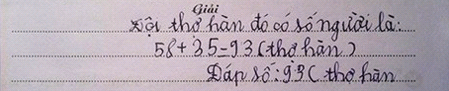 Giải
Đội thợ hàn đó có số người là:
58+35=93 (thợ hàn)
Đáp số: 93 ( thợ hàn